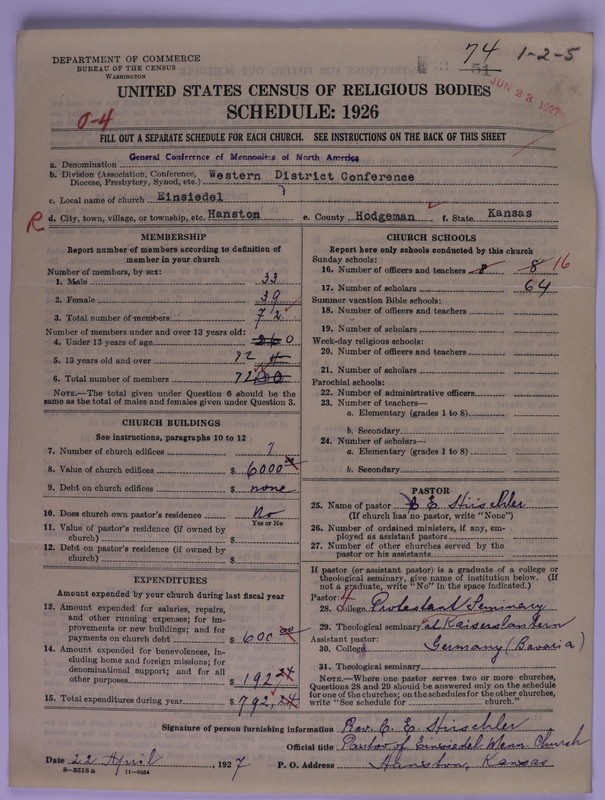 74 1-2-5
51
JUN 23 1927
DEPARTMENT OF COMMERCE
BUREAU OF THE CENSUS
WASHINGTON
UNITED STATES CENSUS OF RELIGIOUS BODIES
SCHEDULE: 1926
0-4
FILL OUT A SEPARATE SCHEDULE FOR EACH CHURCH. SEE INSTRUCTIONS ON THE BACK OF THIS SHEET
a. Denomination General Conference of Mennonites of North America
b. Division (Association, Conference, Diocese, Presbytery, Synod, etc.) Western District Conference
c. Local name of church Einsiedel
R d. City, town, village, or township, etc. Hanston e. County Hodgeman f. State Kansas
MEMBERSHIP
Report number of members according to definition of
member in your church
Number of members, by sex:
1. Male 33
2. Female 39
3. Total number of members 72
Number of members under and over 13 years old:
4. Under 13 years of age 0
5. 13 years old and over 72
6. Total number of members 72
NOTE.—The total given under Question 6 should be the
same as the total of males and females given under Question 3.
CHURCH BUILDINGS
See instructions, paragraphs 10 to 12
7. Number of church edifices 1
8. Value of church edifices $ 6000 00
9. Debt on church edifices $ none
10. Does church own pastor's residence? No
Yes or No
11. Value of pastor's residence (if owned by
church) $
12. Debt on pastor's residence (if owned by
church) $
EXPENDITURES
Amount expended by your church during last fiscal year
13. Amount expended for salaries, repairs,
and other running expenses; for im-
provements or new buildings; and for
payments on church debt $ 600 00
14. Amount expended for benevolences, in-
cluding home and foreign missions; for
denominational support; and for all
other purposes $ 192 24
15. Total expenditures during year $ 792,24
CHURCH SCHOOLS
Report here only schools conducted by this church
Sunday schools:
16. Number of officers and teachers 8 8 16
17. Number of scholars 64
Summer vacation Bible schools:
18. Number of officers and teachers
19. Number of scholars
Week-day religious schools:
20. Number of officers and teachers
21. Number of scholars
Parochial schools:
22. Number of administrative officers
23. Number of teachers—
a. Elementary (grades 1 to 8)
b. Secondary
24. Number of scholars—
a. Elementary (grades 1 to 8)
b. Secondary
PASTOR
25. Name of pastor C E Hirschler
(If church has no pastor, write "None")
26. Number of ordained ministers, if any, em-
ployed as assistant pastors
27. Number of other churches served by the
pastor or his assistants
If pastor (or assistant pastor) is a graduate of a college or
theological seminary, give name of institution below. (If
not a graduate, write "No" in the space indicated.)
Pastor: 4
28. College Protestant Seminary
29. Theological seminary at Kaiserslautern
Assistant pastor:
30. College Germany (Bavaria)
31. Theological seminary
NOTE.—Where one pastor serves two or more churches,
Questions 28 and 29 should be answered only on the schedule
for one of the churches; on the schedules for the other churches,
write "See schedule for church."
Signature of person furnishing information Rev. C. E. Hirschler
Official title Pastor of Einsiedel Menn. Church
Date 22 April, 1927 P. O. Address Hanston, Kansas
8-5518 a 11-9054